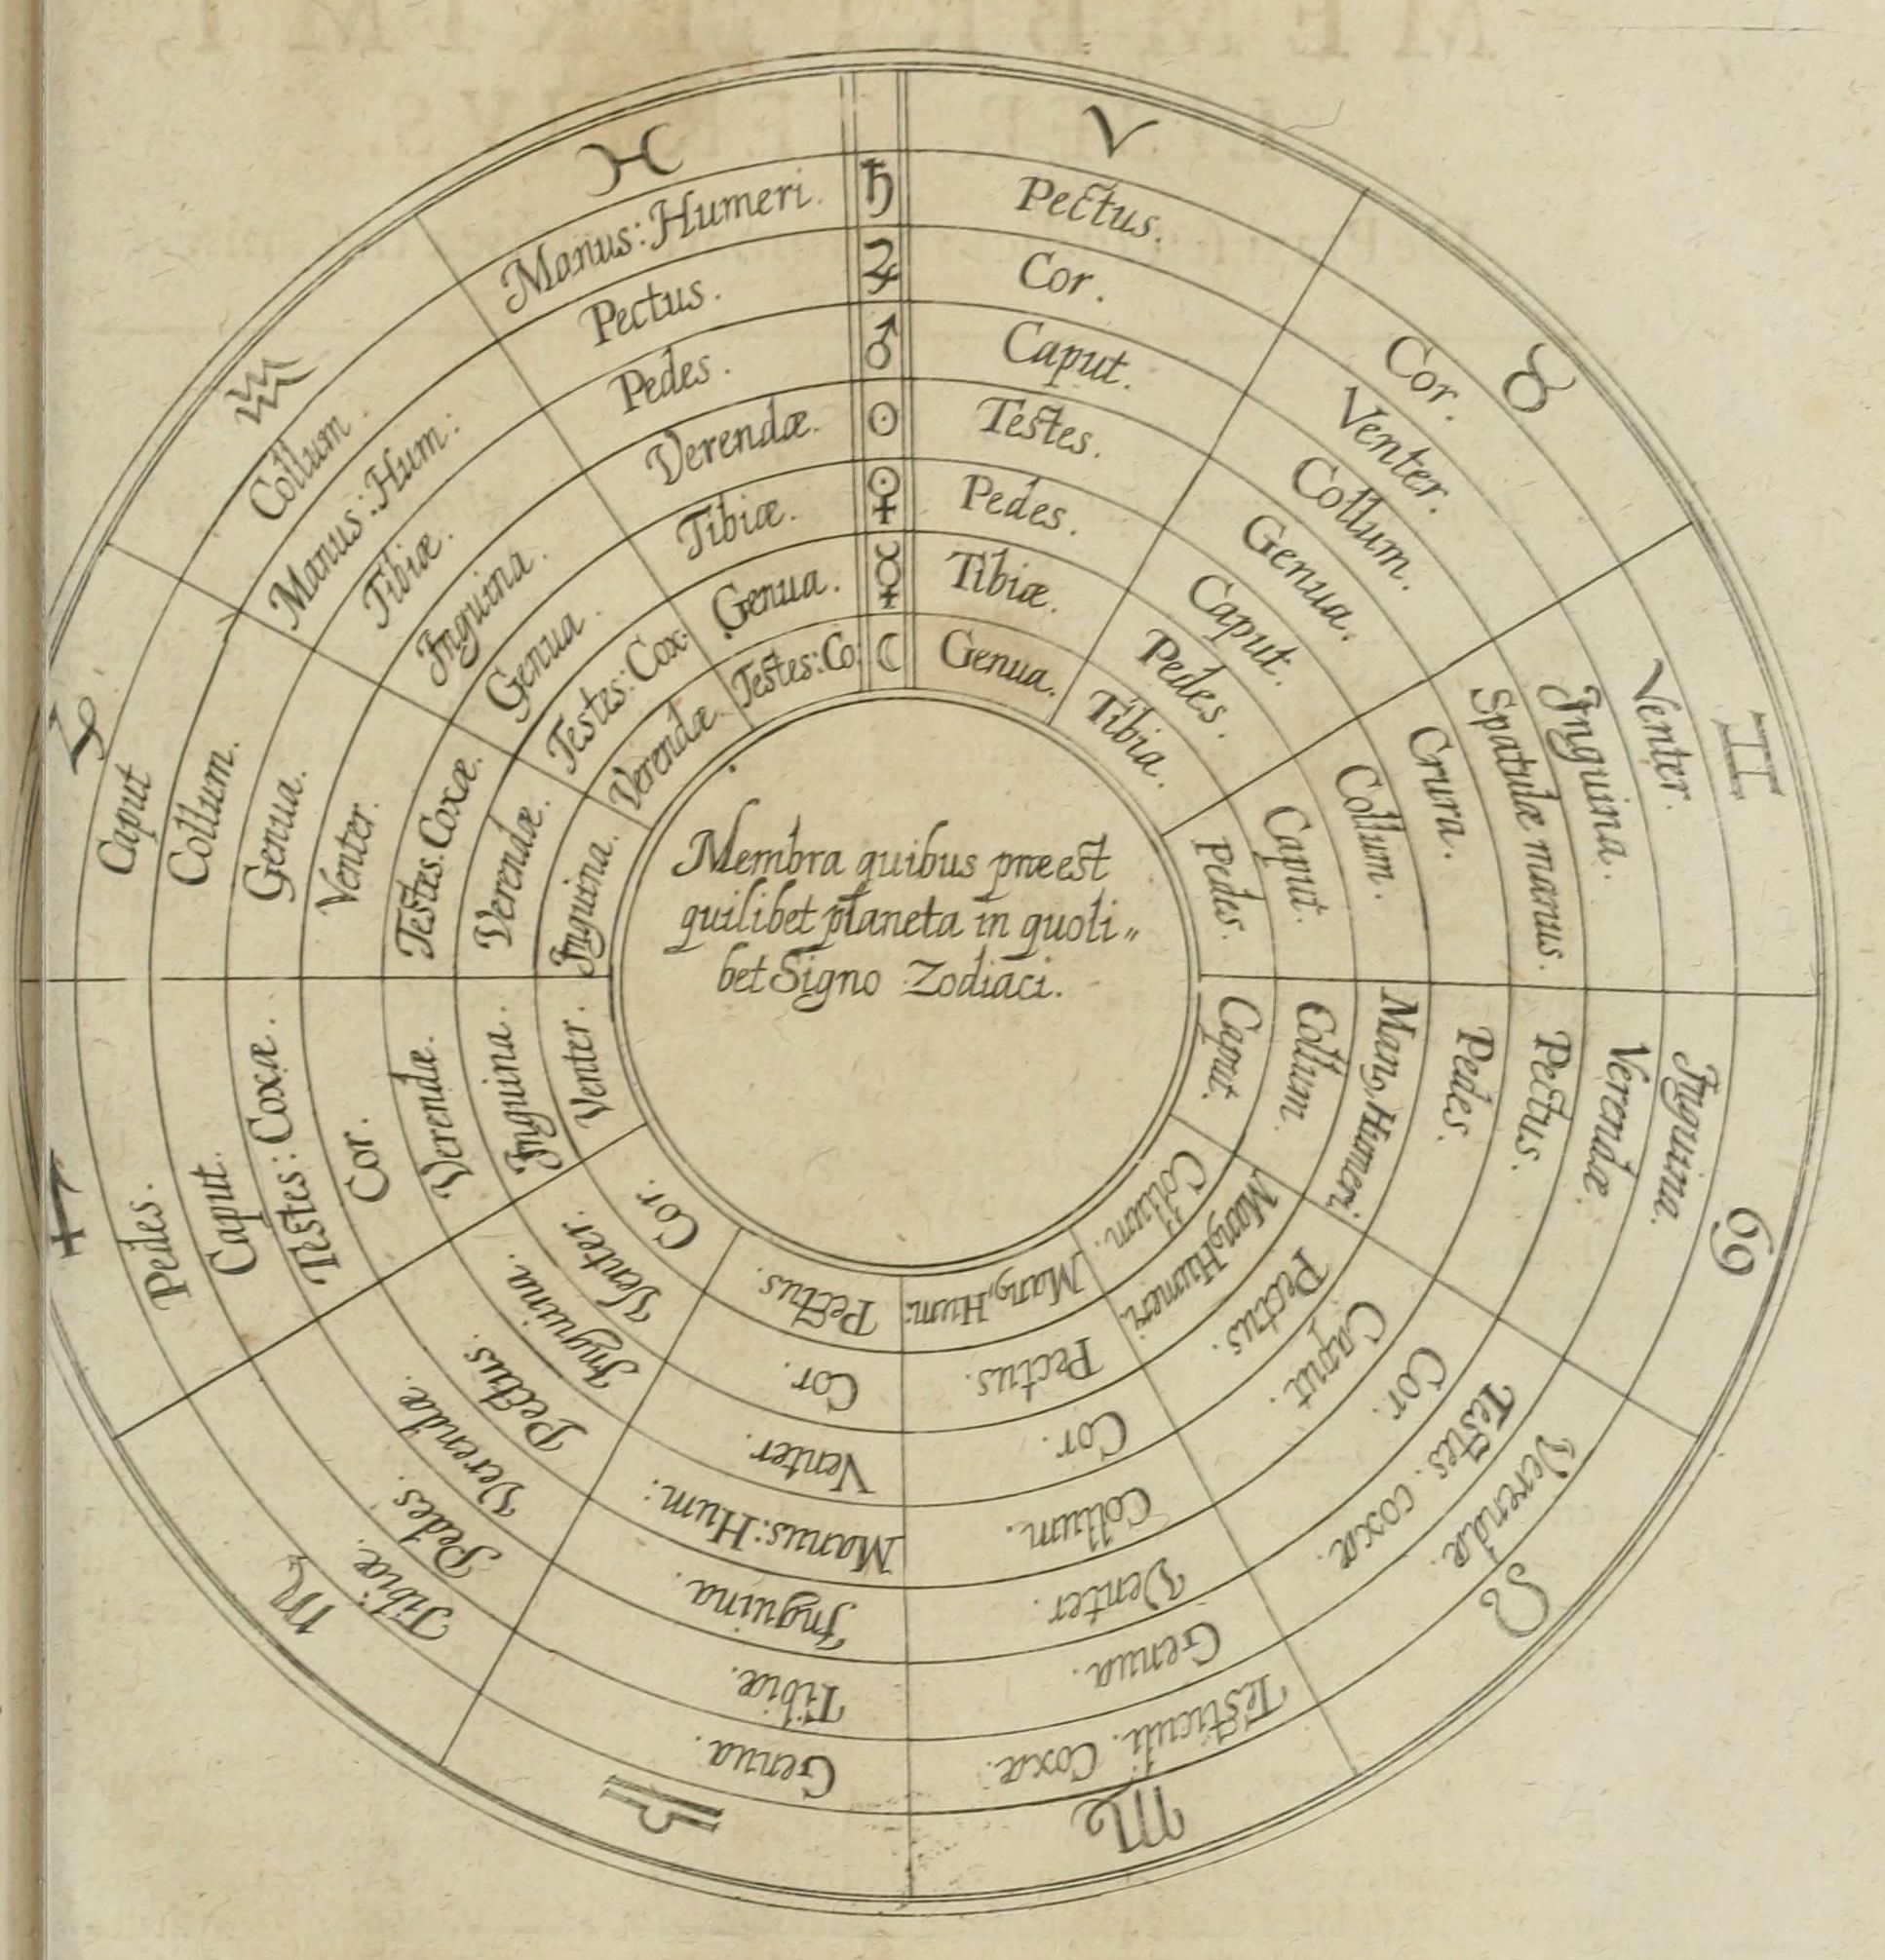 ♓
♈
♉
♊
♋
♌
♍
♎
♏
♐
♑
♒
♄
♃
♂
☉
♀
☿
☾
Pectus.
Cor.
Caput.
Testes.
Pedes.
Tibiæ.
Genua.
Cor.
Venter.
Collum.
Genua.
Caput.
Pedes.
Tibia.
Venter.
Inguina.
Spatulæ manus.
Crura.
Collum.
Caput.
Pedes.
Inguina.
Verendæ.
Pectus.
Pedes.
Man9 Humeri
Collum.
Caput.
Verendæ.
Testes. coxæ.
Cor.
Caput.
Pectus.
Man9 Humeri.
Collum.
Testiculi. Coxæ.
Genua.
Venter.
Collum.
Cor.
Pectus.
Man9 Hum:
Genua.
Tibiæ.
Inguina.
Manus: Hum:
Venter.
Cor.
Pectus.
Tibiæ.
Pedes.
Verendæ.
Pectus.
Inguina.
Venter.
Cor.
Pedes.
Caput.
Testes: Coxæ.
Cor.
Verendæ.
Inguina.
Venter.
Caput
Collum.
Genua.
Venter.
Testes. Coxæ.
Verendæ.
Inguina.
Collum.
Manus: Hum:
Tibiæ.
Inguina.
Genua.
Testes: Cox:
Verendæ.
Manus: Humeri.
Pectus.
Pedes.
Verendæ.
Tibiæ.
Genua.
Testes: Co:
Membra quibus præest
quilibet planeta in quoli„
bet Signo Zodiaci.